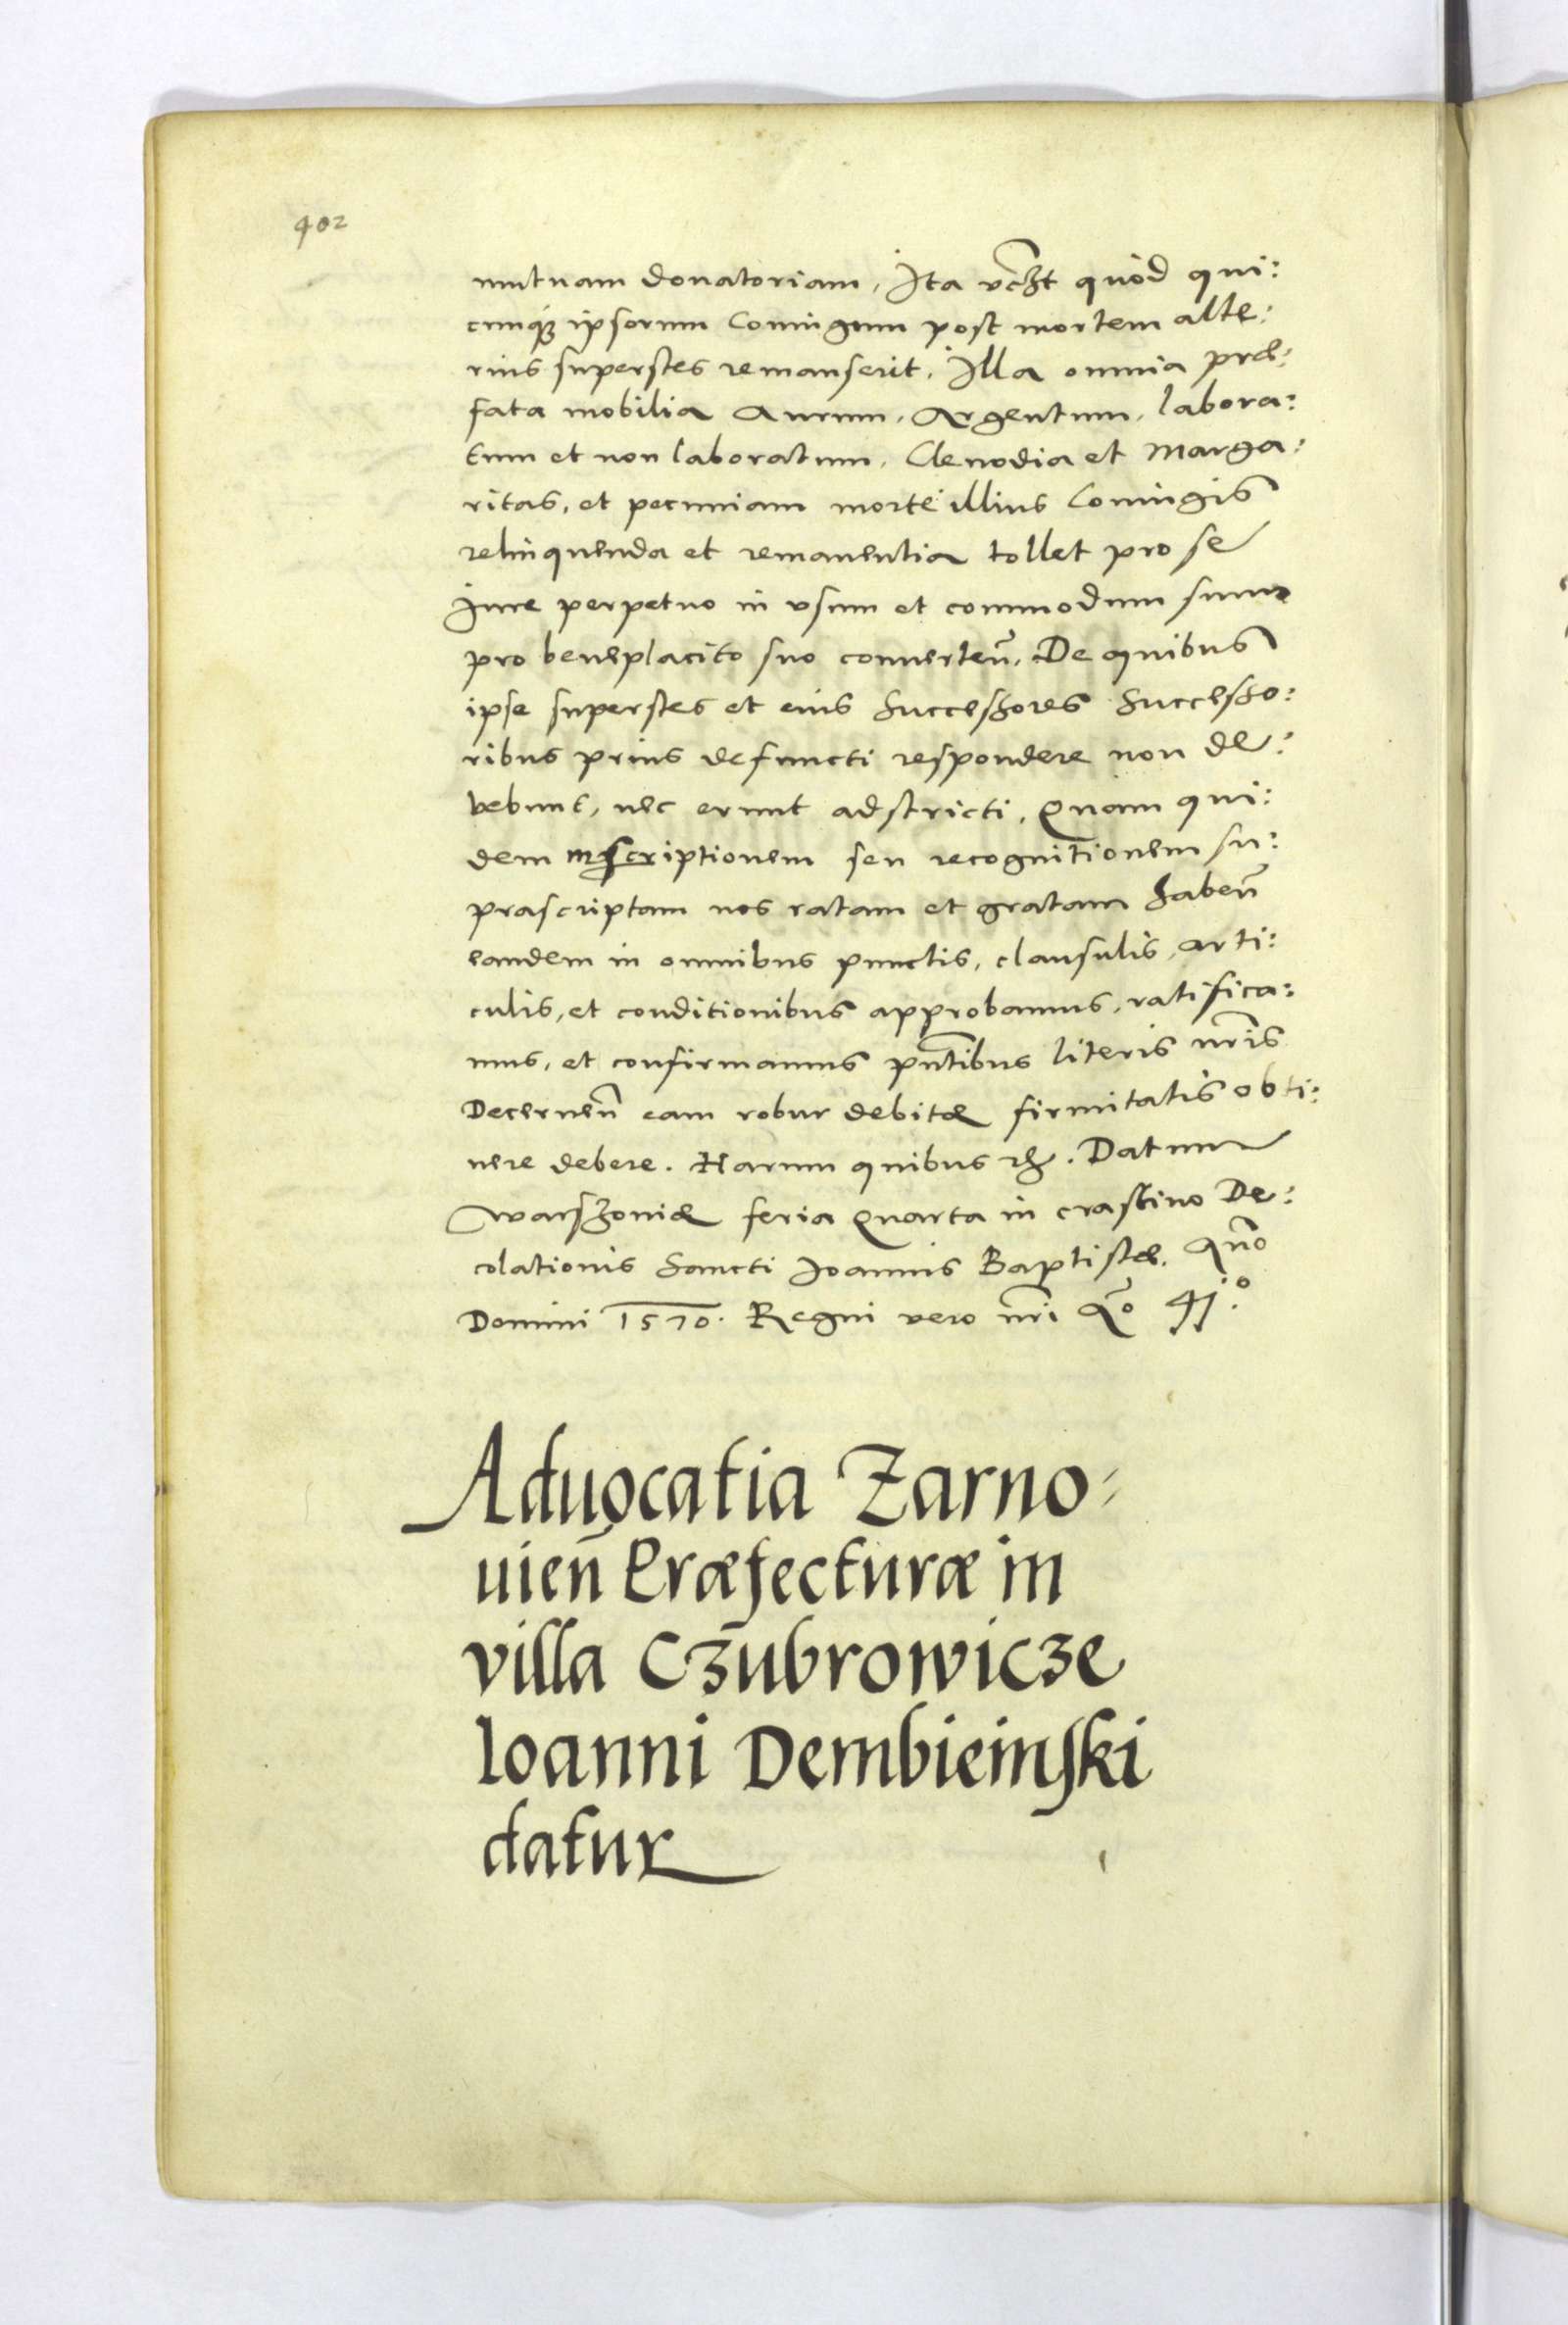 402
mutuam donatoriam, Ita vczt quòd qui:
cunq; ipsorum Coniugum post mortem alte:
rius superstes remanserit. Illa omnia præ:
fata mobilia Aurum, Argentum, labora:
tum et non laboratum, Clenodia et Marga:
ritas, et pecuniam morte illius Coniugis
relinquenda et remanentia tollet pro se
Iure perpetuo in vsum et commodum suum
pro beneplacito suo conuerteñ. De quibus
ipse superstes et eius Successores Successo:
ribus prius defuncti respondere non de:
bebunt, nec erunt adstricti, Quam qui:
dem inscriptionem seu recognitionem su:
prascriptam nos ratam et gratam habeñ
eandem in omnibus punctis, clausulis, arti:
culis, et conditionibus approbamus, ratifica:
mus, et confirmamus pñtibus literis nr̃is
Decerneñ eam robur debitæ firmitatis obti:
nere debere. Harum quibus &c. Datum
Warszouiæ feria Quarta in crastino De:
colationis Sancti Joannis Baptistæ. Año
Domini 1570. Regni vero nr̃i Ao 41o
Aduocatia Zarno-
uieñ Præfecturæ in
villa Czubrowicze
Ioanni Dembieinski
datur